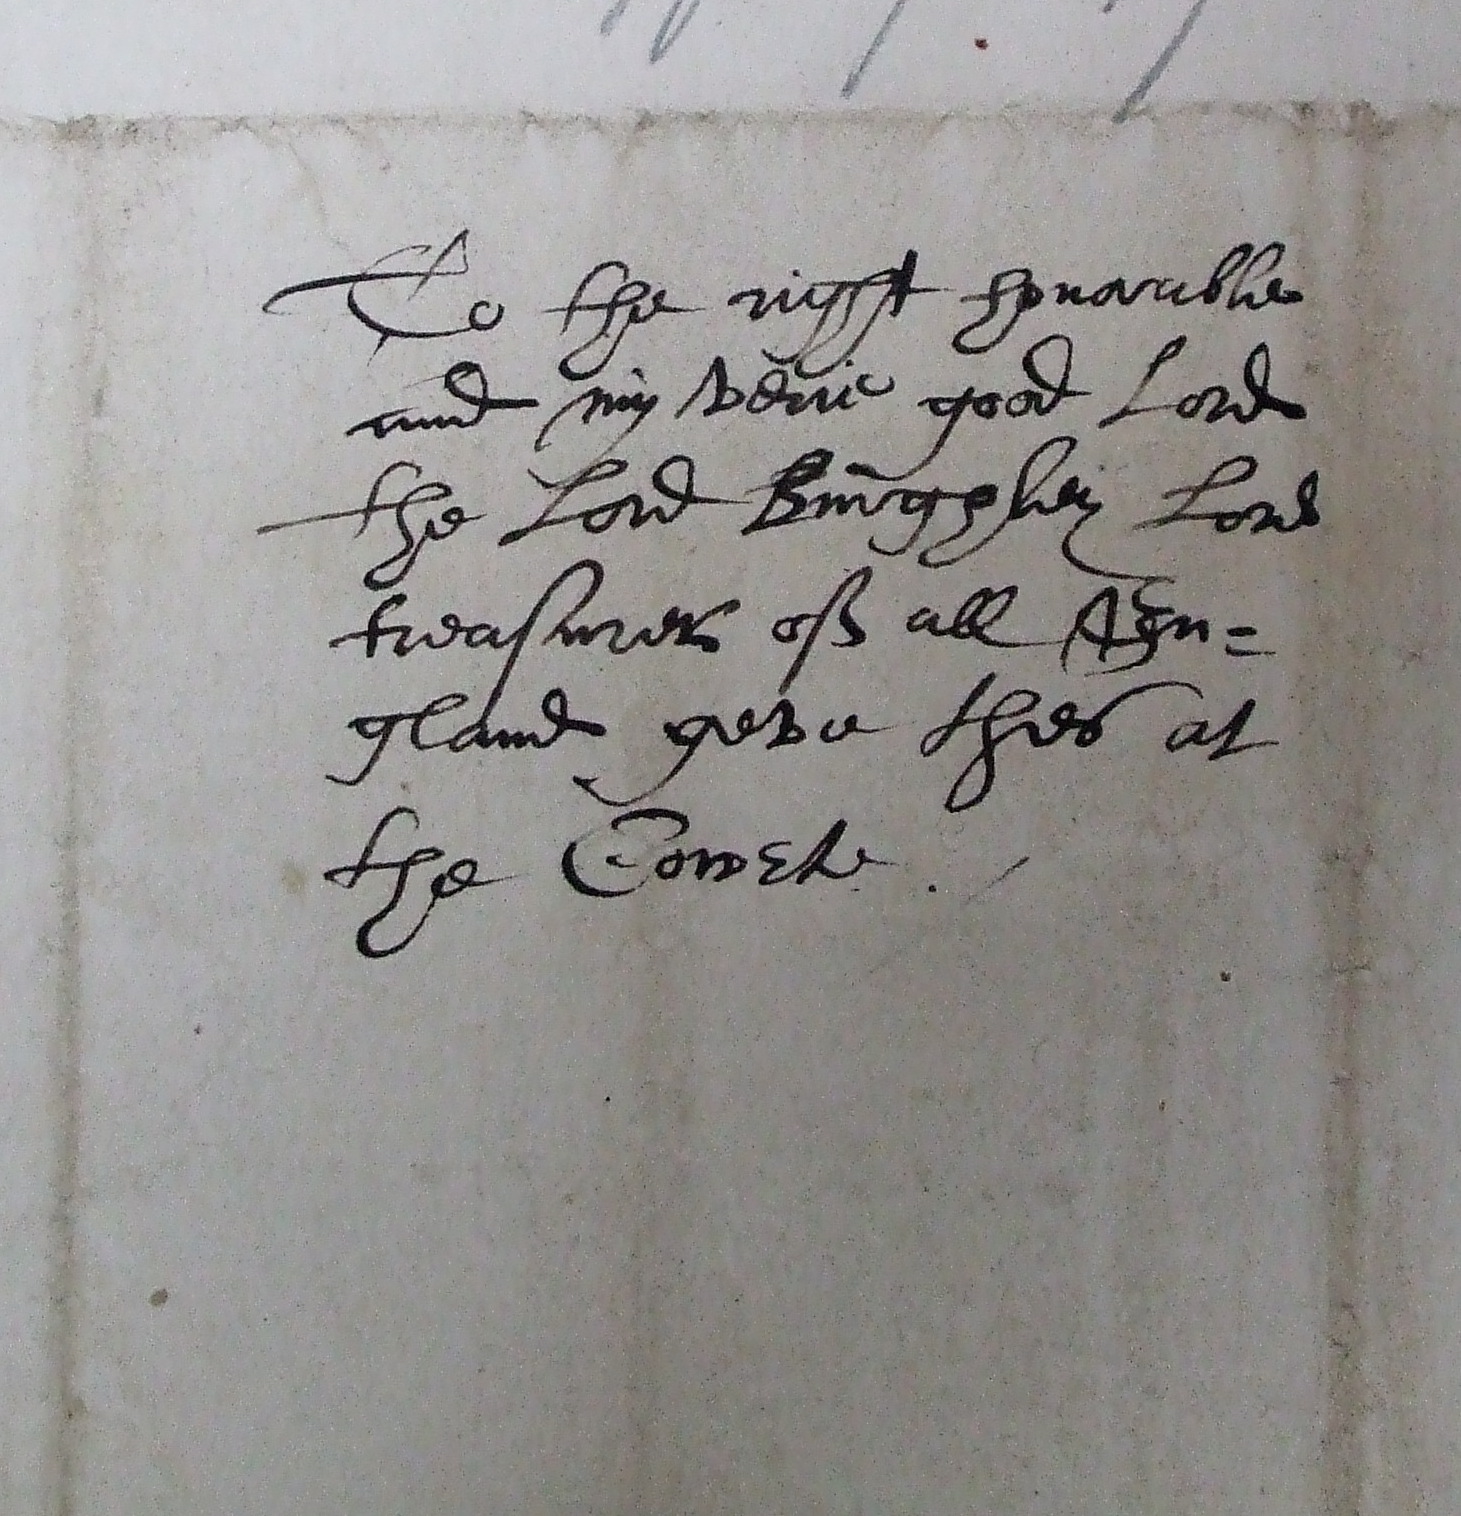 To the right honorable
and my verie good Lord
the Lord Burghley Lord
treasurer off all En=
gland geve thes at
the Cowrte .